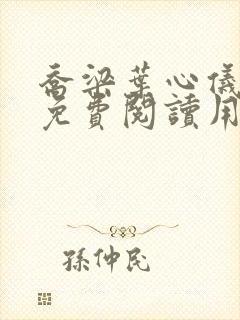 喬梁葉心儀
免費閱讀用
孫仲民